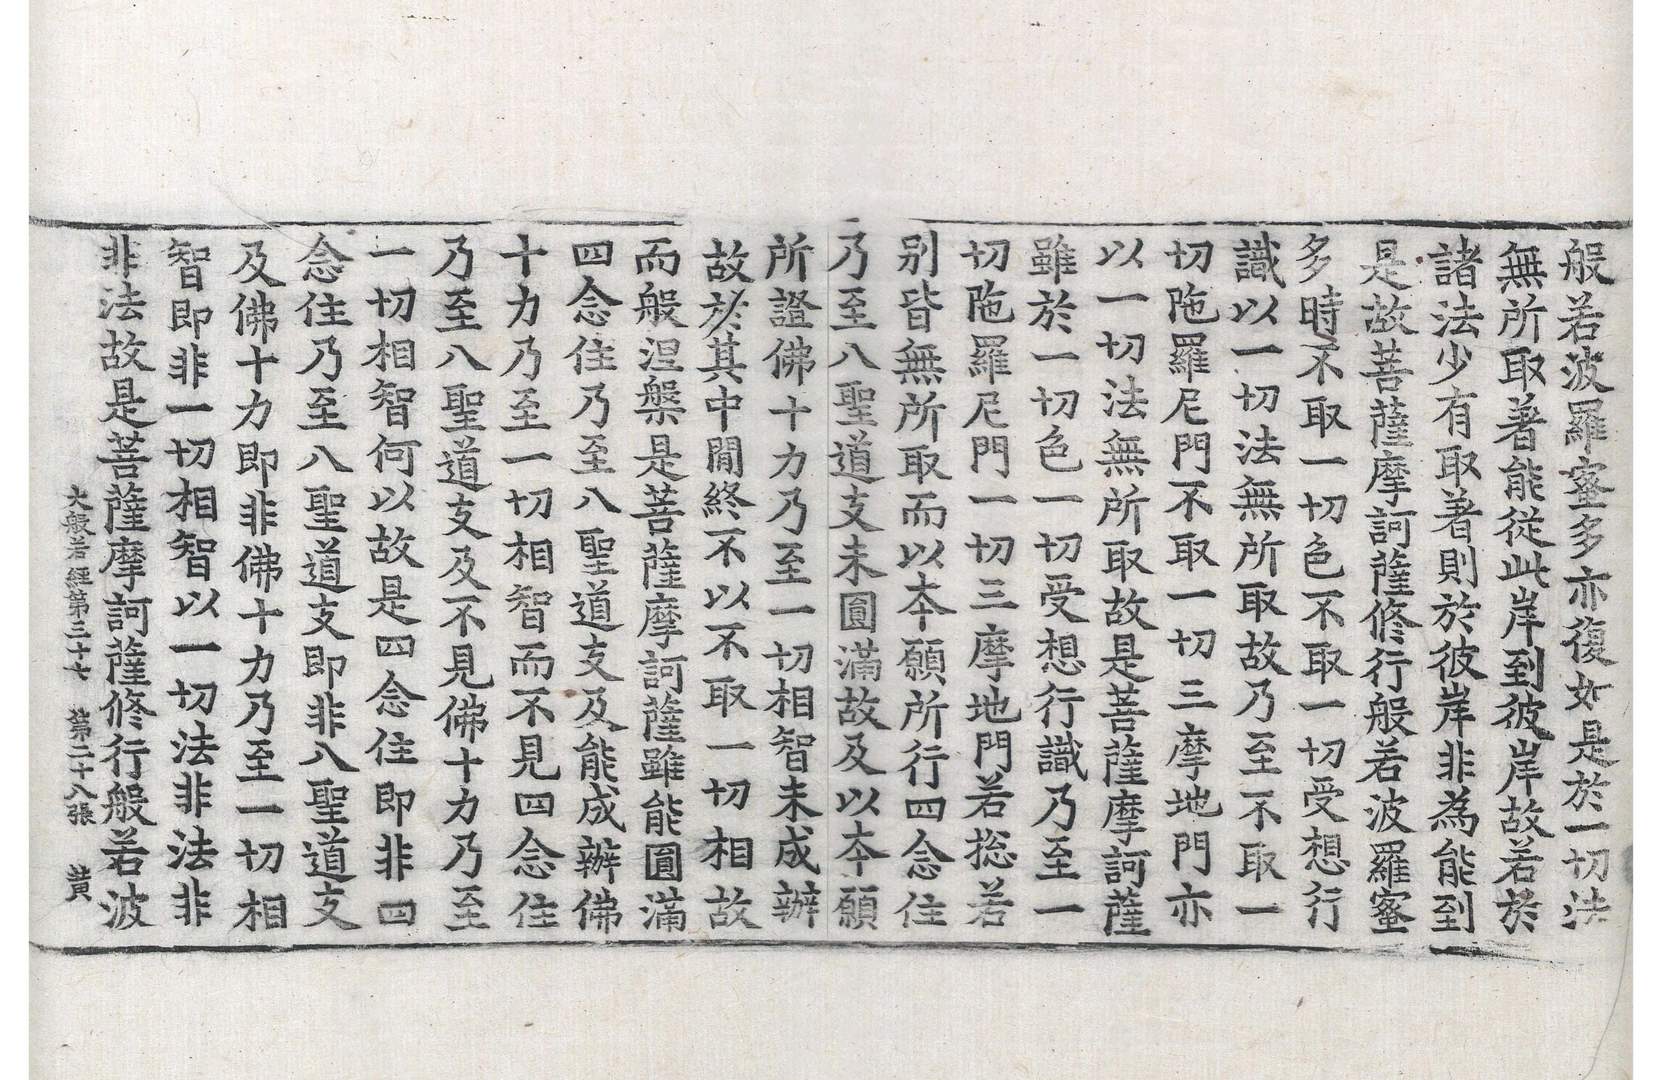 般若波羅蜜多亦復如是於一切法
無所取著能從此岸到彼岸故若於
諸法少有取著則於彼岸非為能到
是故菩薩摩訶薩修行般若波羅蜜
多時不取一切色不取一切受想行
識以一切法無所取故乃至不取一
切陁羅尼門不取一切三摩地門亦
以一切法無所取故是菩薩摩訶薩
雖於一切色一切受想行識乃至一
切陁羅尼門一切三摩地門若捴若
别皆無所取而以夲願所行四念住
乃至八聖道支未圓滿故及以夲願
所證佛十力乃至一切相智未成辦
故於其中間終不以不取一切相故
而般涅槃是菩薩摩訶薩雖能圓滿
四念住乃至八聖道支及能成辦佛
十力乃至一切相智而不見四念住
乃至八聖道支及不見佛十力乃至
一切相智何以故是四念住即非四
念住乃至八聖道支即非八聖道支
及佛十力即非佛十力乃至一切相
智即非一切相智以一切法非法非
非法故是菩薩摩訶薩修行般若波
大般若經第三十七 第二十八張 黄